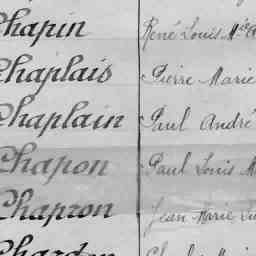 Chapin René Louis Mie
Chaplais Pierre Marie
Chaplain Paul André
Chapon Paul Louis
Chapron Jean Marie